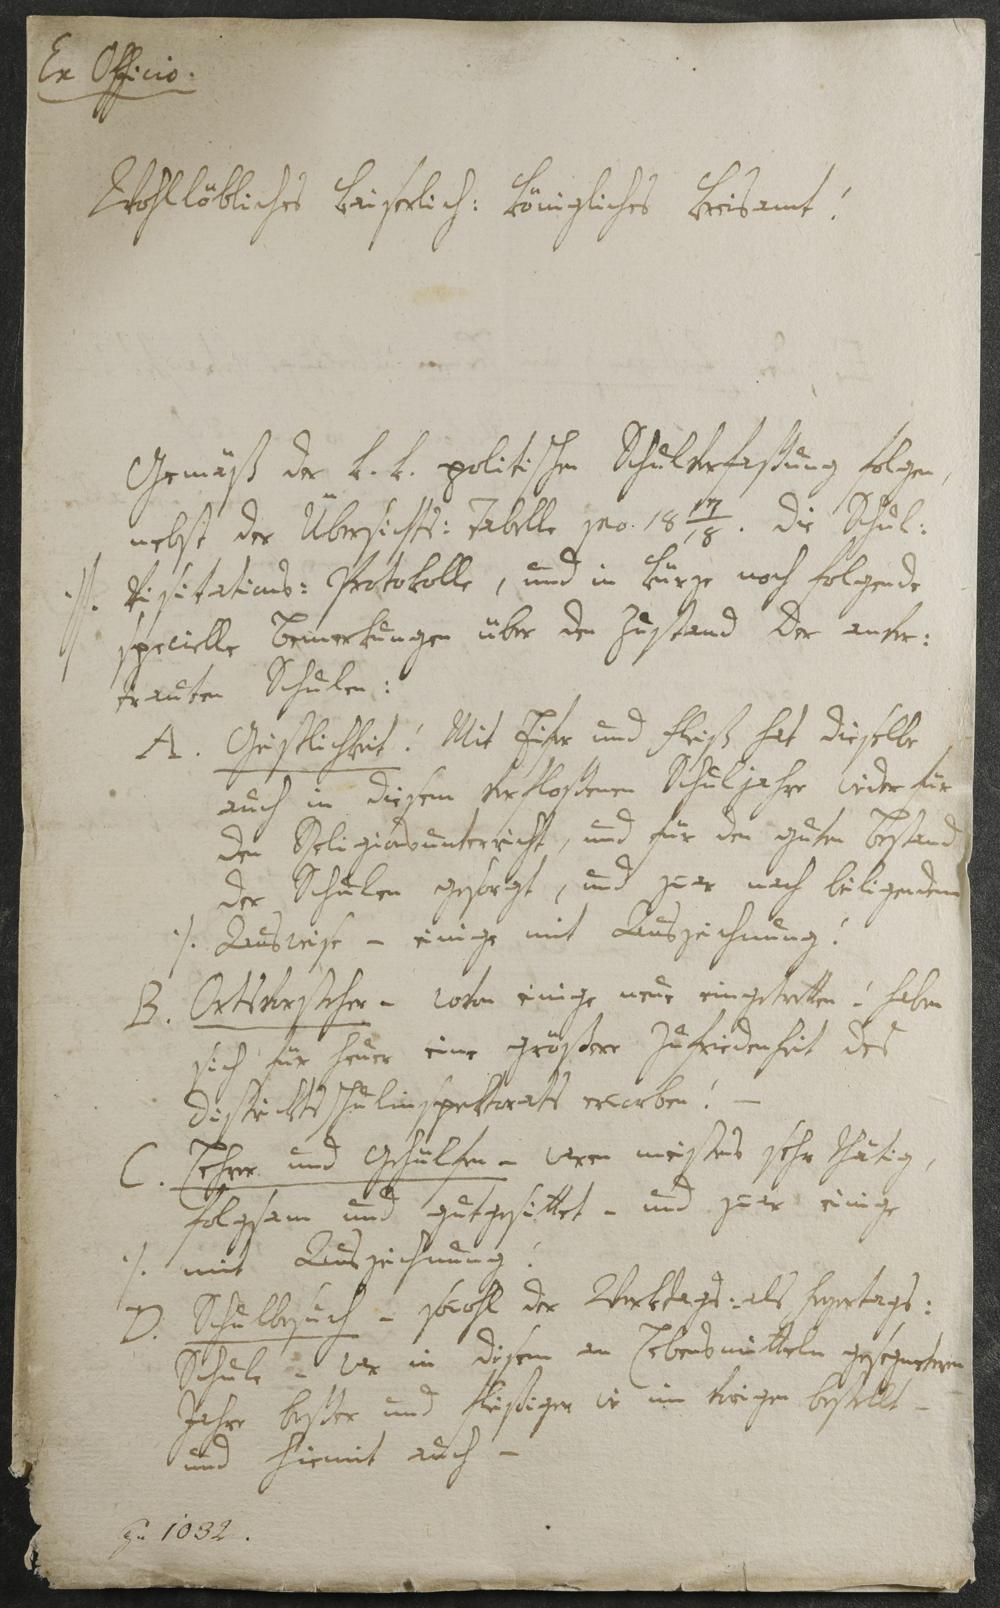 Ex Officio.
Wohllöbliches kaiserlich: königliches Kreisamt!
Gemäß der k. k. politischen Schulverfaßung folgen,
nebst der Übersichts: Tabelle pro. 18 17/18. die Schul:
·/. Visitations: Protokolle, und in Kürze noch folgende
specielle Bemerkungen über den Zustand der anver:
trauten Schulen:
A. Geistlichkeit! Mit Eifer und Fleiß hat dieselbe
auch in diesem verfloßenen Schuljahre wieder für
den Religionsunterricht, und für den guten Bestand
der Schulen gesorgt, und zwar nach beiligendem
·/. Ausweise – einige mit Auszeichnung!
B. Ortsvorsteher – wovon einige neue eingetretten! haben
sich für heuer eine größere Zufriedenheit des
Distriktsschulinspektorats erworben! –
C. Lehrer und Gehülfen – waren meistens sehr thätig,
folgsam und gutgesittet – und zwar einige
·/. mit Auszeichnung!
D. Schulbesuch – sowohl der Werktags: als Feyertags:
Schule – war in diesem an Lebensmitteln gesegneteren
Jahre beßer und fleißiger wie im vorigen bestellt –
und hiemit auch –
Zu 1032.